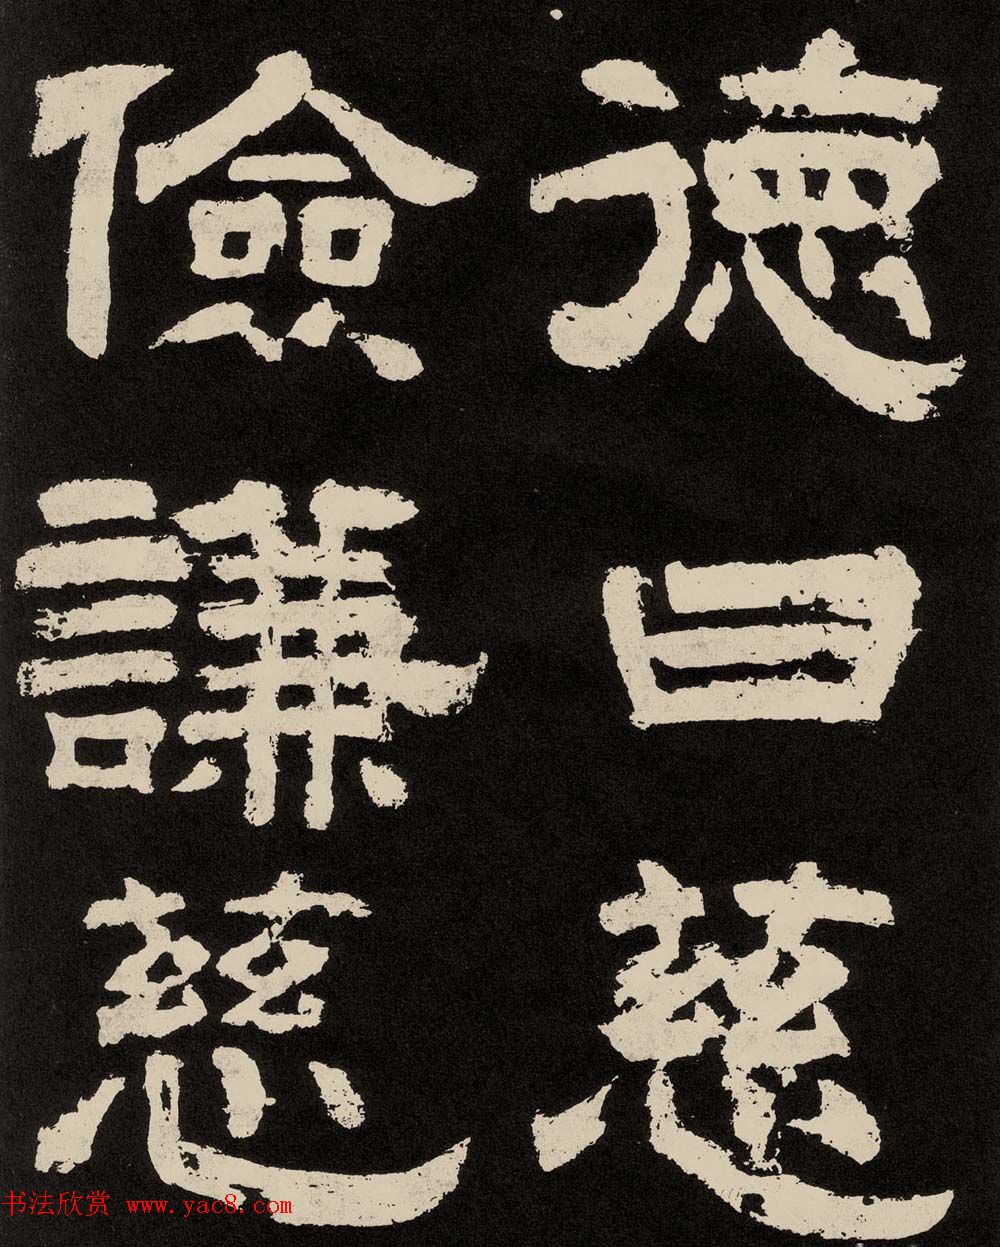 德曰慈
儉謙慈
书法欣赏 www.yac8.com